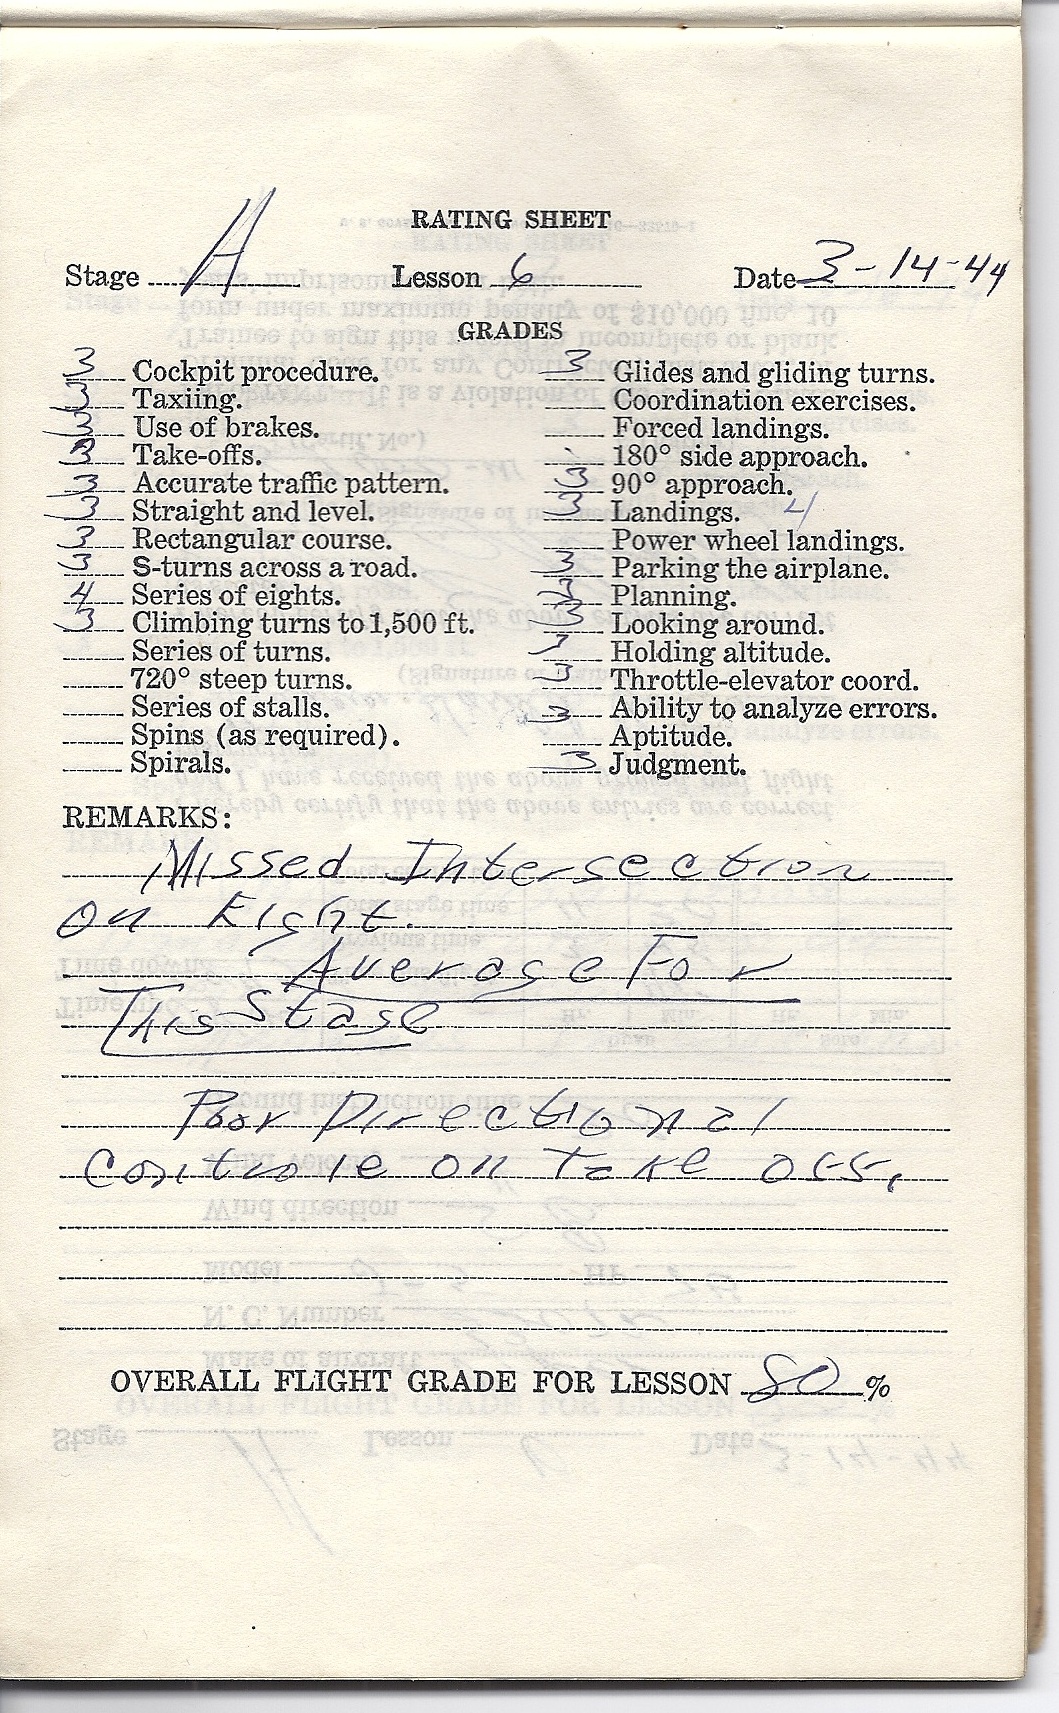 RATING SHEET
Stage A Lesson 6 Date 3-14-44
GRADES
3 Cockpit procedure.
3 Taxiing.
3 Use of brakes.
3 Take-offs.
3 Accurate traffic pattern.
3 Straight and level.
3 Rectangular course.
3 S-turns across a road.
4 Series of eights.
3 Climbing turns to 1,500 ft.
Series of turns.
720° steep turns.
Series of stalls.
Spins (as required).
Spirals.
3 Glides and gliding turns.
Coordination exercises.
Forced landings.
180° side approach.
3 90° approach.
3 Landings. 4
Power wheel landings.
3 Parking the airplane.
3 Planning.
3 Looking around.
Holding altitude.
3 Throttle-elevator coord.
3 Ability to analyze errors.
Aptitude.
3 Judgment.
REMARKS:
Missed Intersection
on Eight.
Average For
This Stage
Poor Directional
Controle on take off.
OVERALL FLIGHT GRADE FOR LESSON 80 %